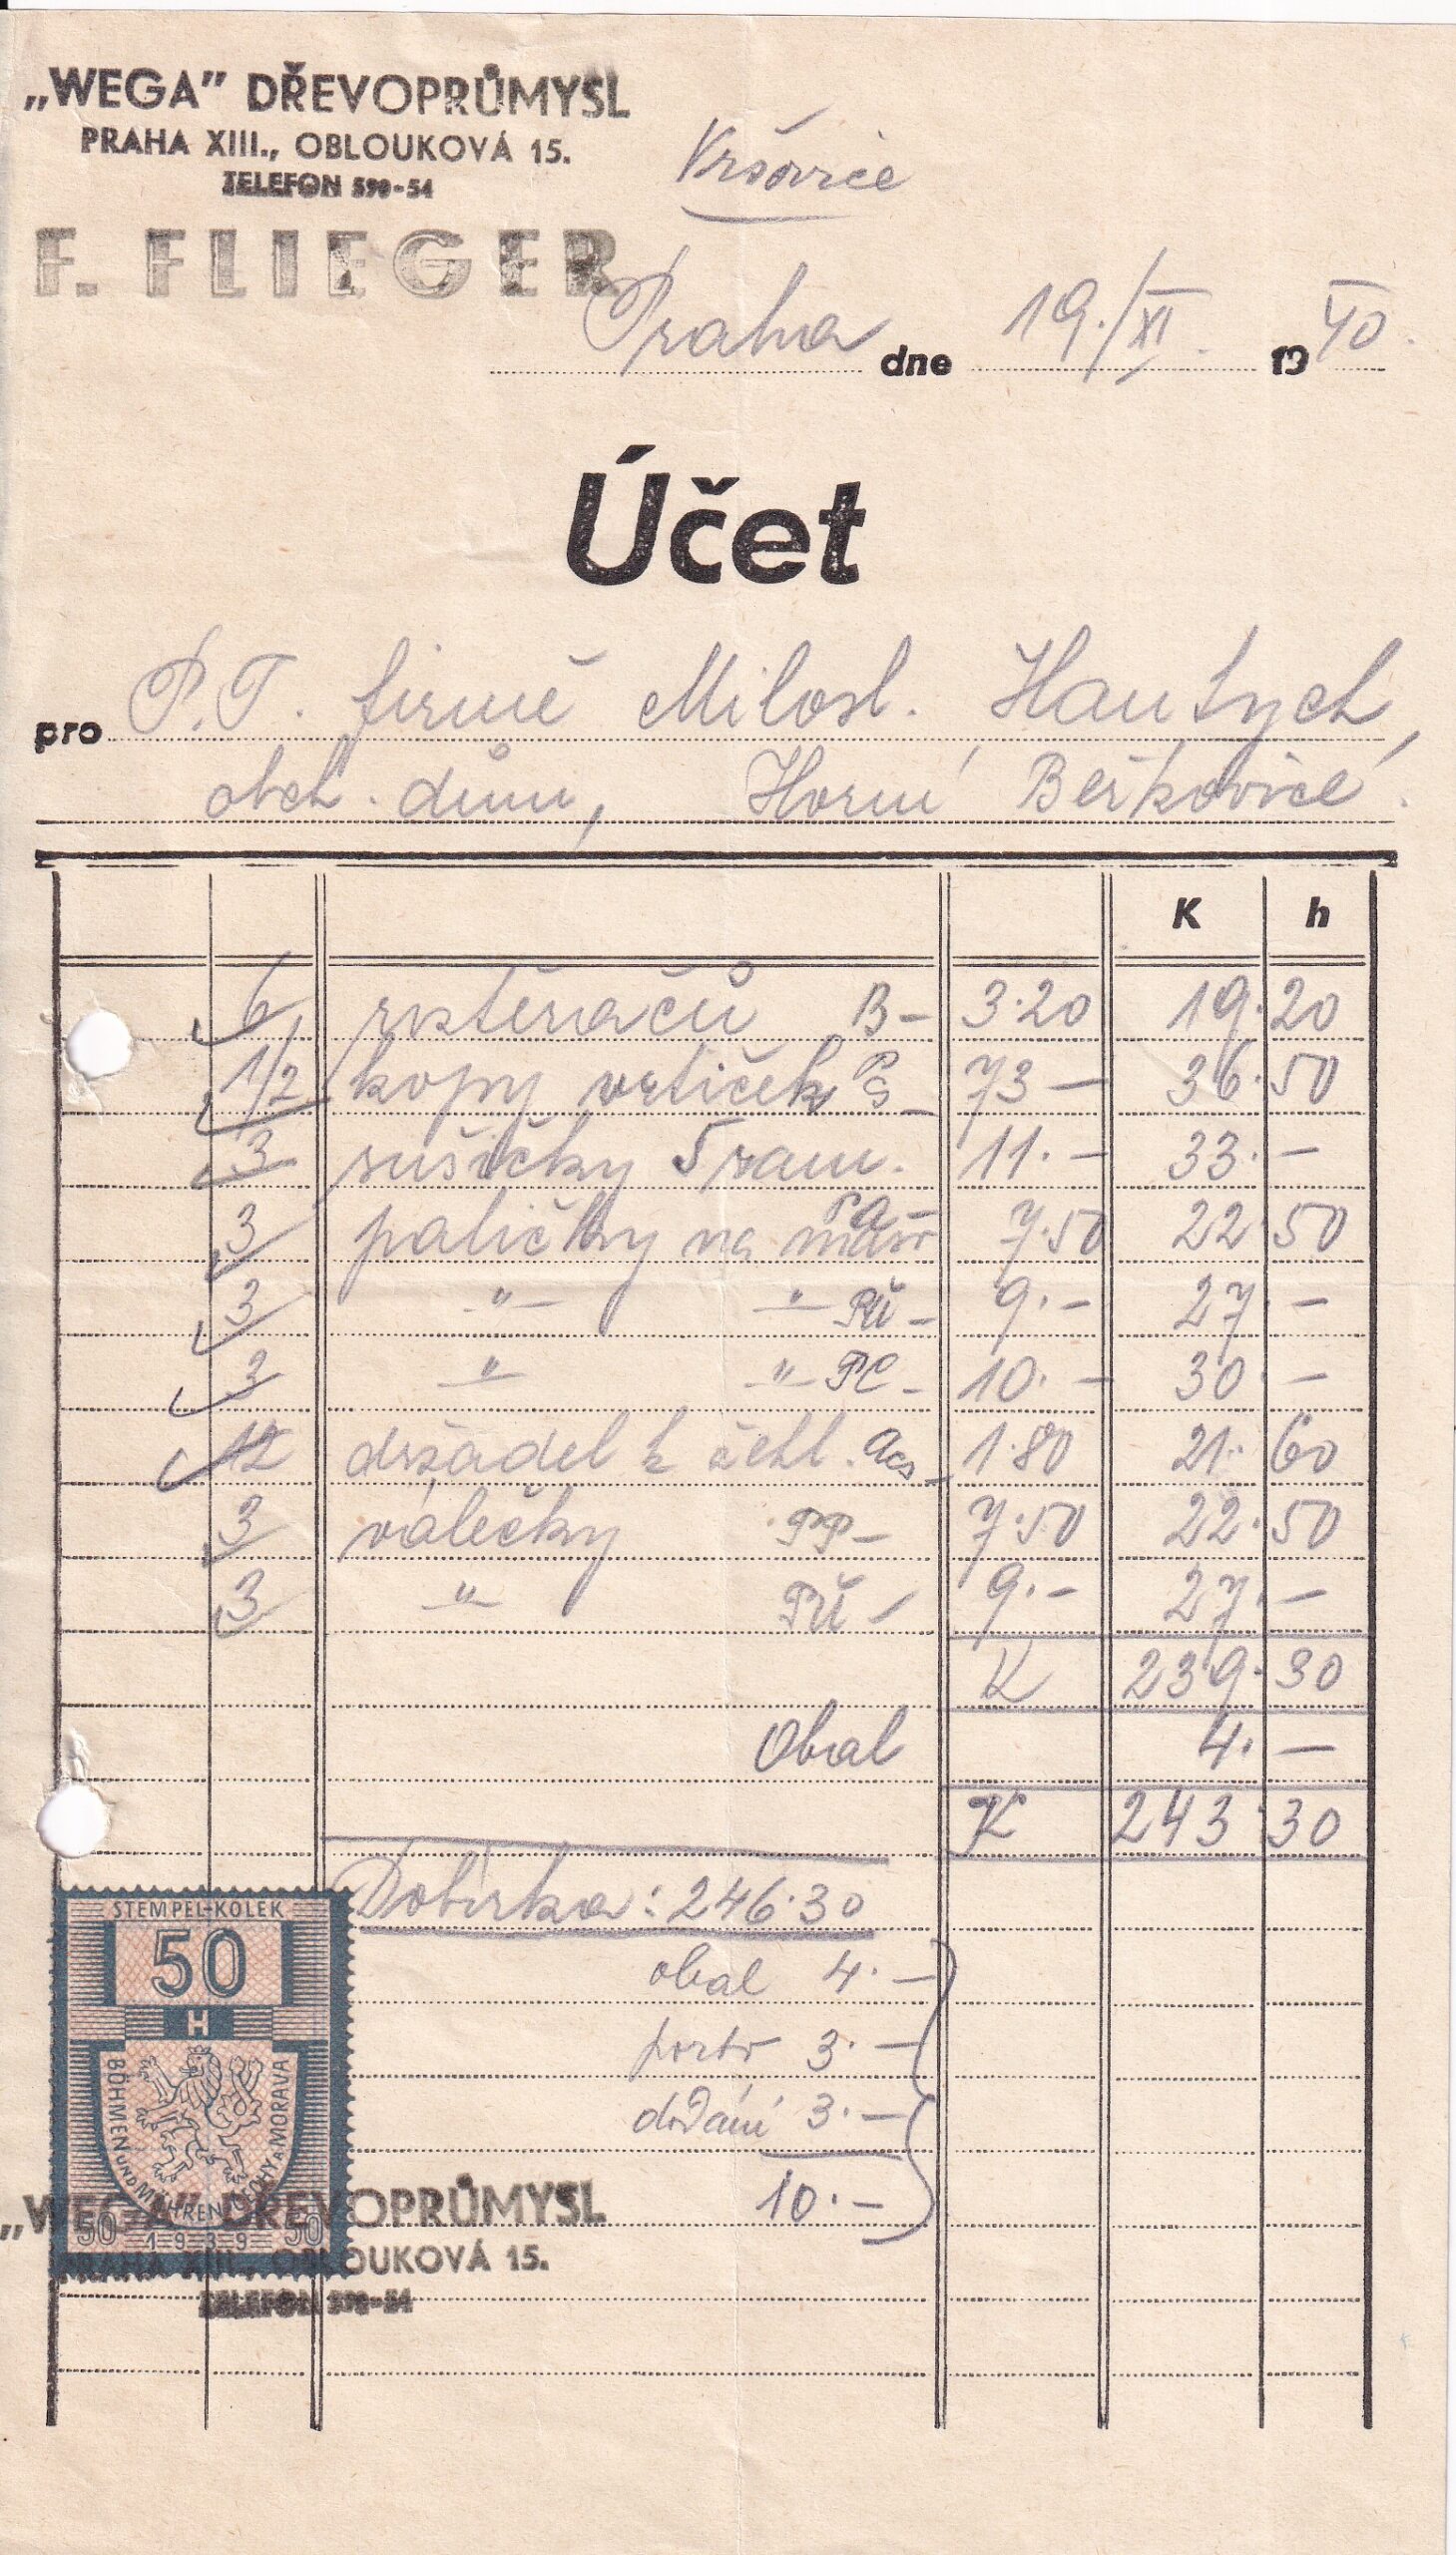 „WEGA” DŘEVOPRŮMYSL
PRAHA XIII., OBLOUKOVÁ 15.
TELEFON 590-54
Vršovice
F. FLIEGER
Praha dne 19./XI. 1940.
Účet
pro P.T. firmě Milosl. Hantych,
obch. dům, Horní Beřkovice.
K h
6 roztěračů B- 3.20 19.20
1/2 kopy vrtiček PS- 73- 36.50
3 sušičky 5 ram. 11.- 33.-
3 paličky na maso PA- 7.50 22.50
3 -"- -"- PŮ- 9.- 27.-
3 -"- -"- PC- 10.- 30.-
12 držadel k žehl. Acs- 1.80 21.60
3 válečky PP- 7.50 22.50
3 -"- PŮ- 9.- 27.-
K 239.30
Obal 4.-
K 243.30
Dobírka: 246.30
obal 4.-
porto 3.-
dodání 3.-
10.-
STEMPEL-KOLEK
50
H
BÖHMEN UND MÄHREN ČECHY A MORAVA
50 1939 50
„WEGA” DŘEVOPRŮMYSL
PRAHA XIII., OBLOUKOVÁ 15.
TELEFON 590-54